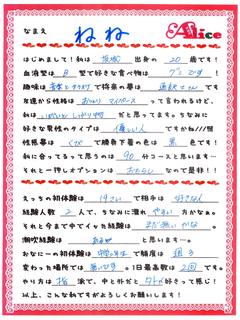 なまえ ねね Alice
はじめまして！私は 茨城 出身の 20 歳です！
血液型は B 型で好きな食べ物は グミ です！
趣味は 音楽とカラオケ で将来の夢は さん です
友達から性格は おっとり マイペース って言われるけど、
私は しっかり物 だと思ってます。ちなみに
好きな男性のタイプは 優しい人 ですが照///
性感帯は くび で勝負下着の色は 黒 色です！
私に会ってるって思うのは 90 分コースと思います…
それと一押しオプションは おもらし なので是非！！
えっちの初体験は 19さい で相手は 好きな人
経験人数 2 人で、ちなみに濡れ やすい 方かなぁ。
それと今まで中でイッた経験は まだ無い かな。
潮吹経験は ある と思います…。
おなにーの初体験は 中学2年生 で頻度は 週3
変わった場所では 無いです 。1日最高数は 2回 です。
やり方は 指 派で、中と外だと 外 が好きって感じ！
以上、こんな私ですがよろしくお願いします！